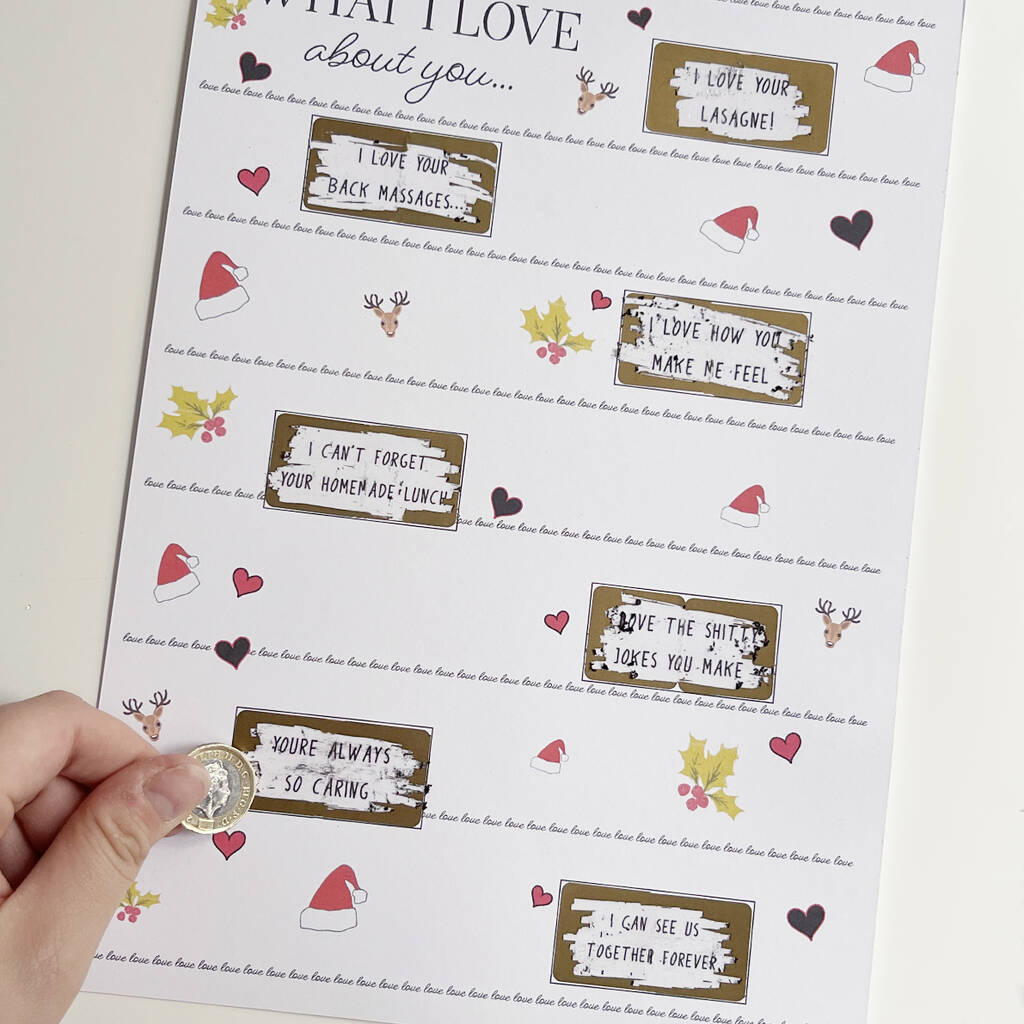 love love love love love love love love
WHAT I LOVE
about you...
I LOVE YOUR
LASAGNE!
love love love love love love love love love love love love love love love love love love love love love love love love love love love love
I LOVE YOUR
BACK MASSAGES...
love love love love love love love love love love love love love love love love love love love love love love love love love love love love
I LOVE HOW YOU
MAKE ME FEEL
love love love love love love love love love love love love love love love love love love love love love love love love love love love love
I CAN'T FORGET
YOUR HOMEMADE LUNCH
love love love love love love love love love love love love love love love love love love love love
LOVE THE SHITTY
JOKES YOU MAKE
love love love love love love love love love love love love love love love love love love love love love love love love love love
YOURE ALWAYS
SO CARING
love love love love love love love love love love love love love love love love
I CAN SEE US
TOGETHER FOREVER
love love love love love love love love love love love love love love love love love love love love love love love love love love